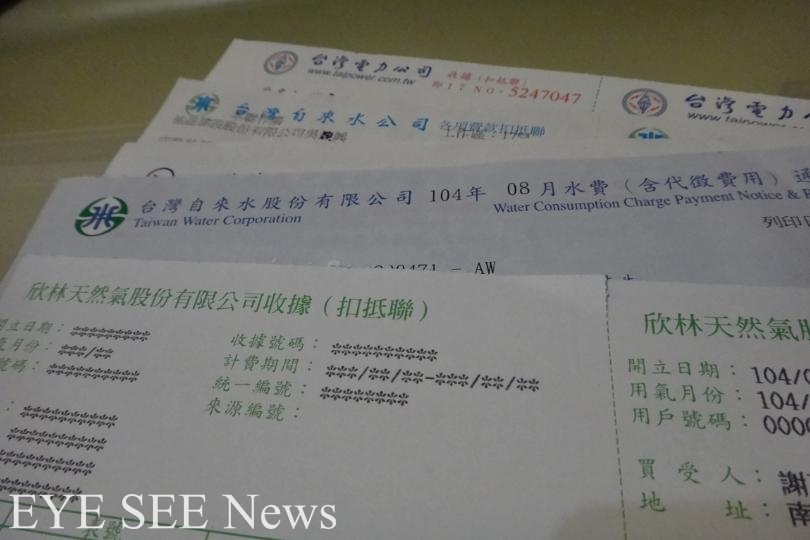 台灣電力公司
www.taipower.com.tw
收據(扣抵聯)
NO. 5247047
台灣電力公司
台灣自來水公司 各項費款扣抵聯
台灣自來水股份有限公司 104年 08月水費(含代徵費用)通
Taiwan Water Corporation
Water Consumption Charge Payment Notice &
列印日
- AW
欣林天然氣股份有限公司收據(扣抵聯)
開立日期:********
月份:***/**
號碼:********
收據號碼:**********
計費期間:***/**/**-***/**/**
統一編號:********
來源編號:
欣林天然氣
開立日期:104/0
用氣月份:104/
用戶號碼:0000
買受人:謝
地 址:南
EYE SEE News